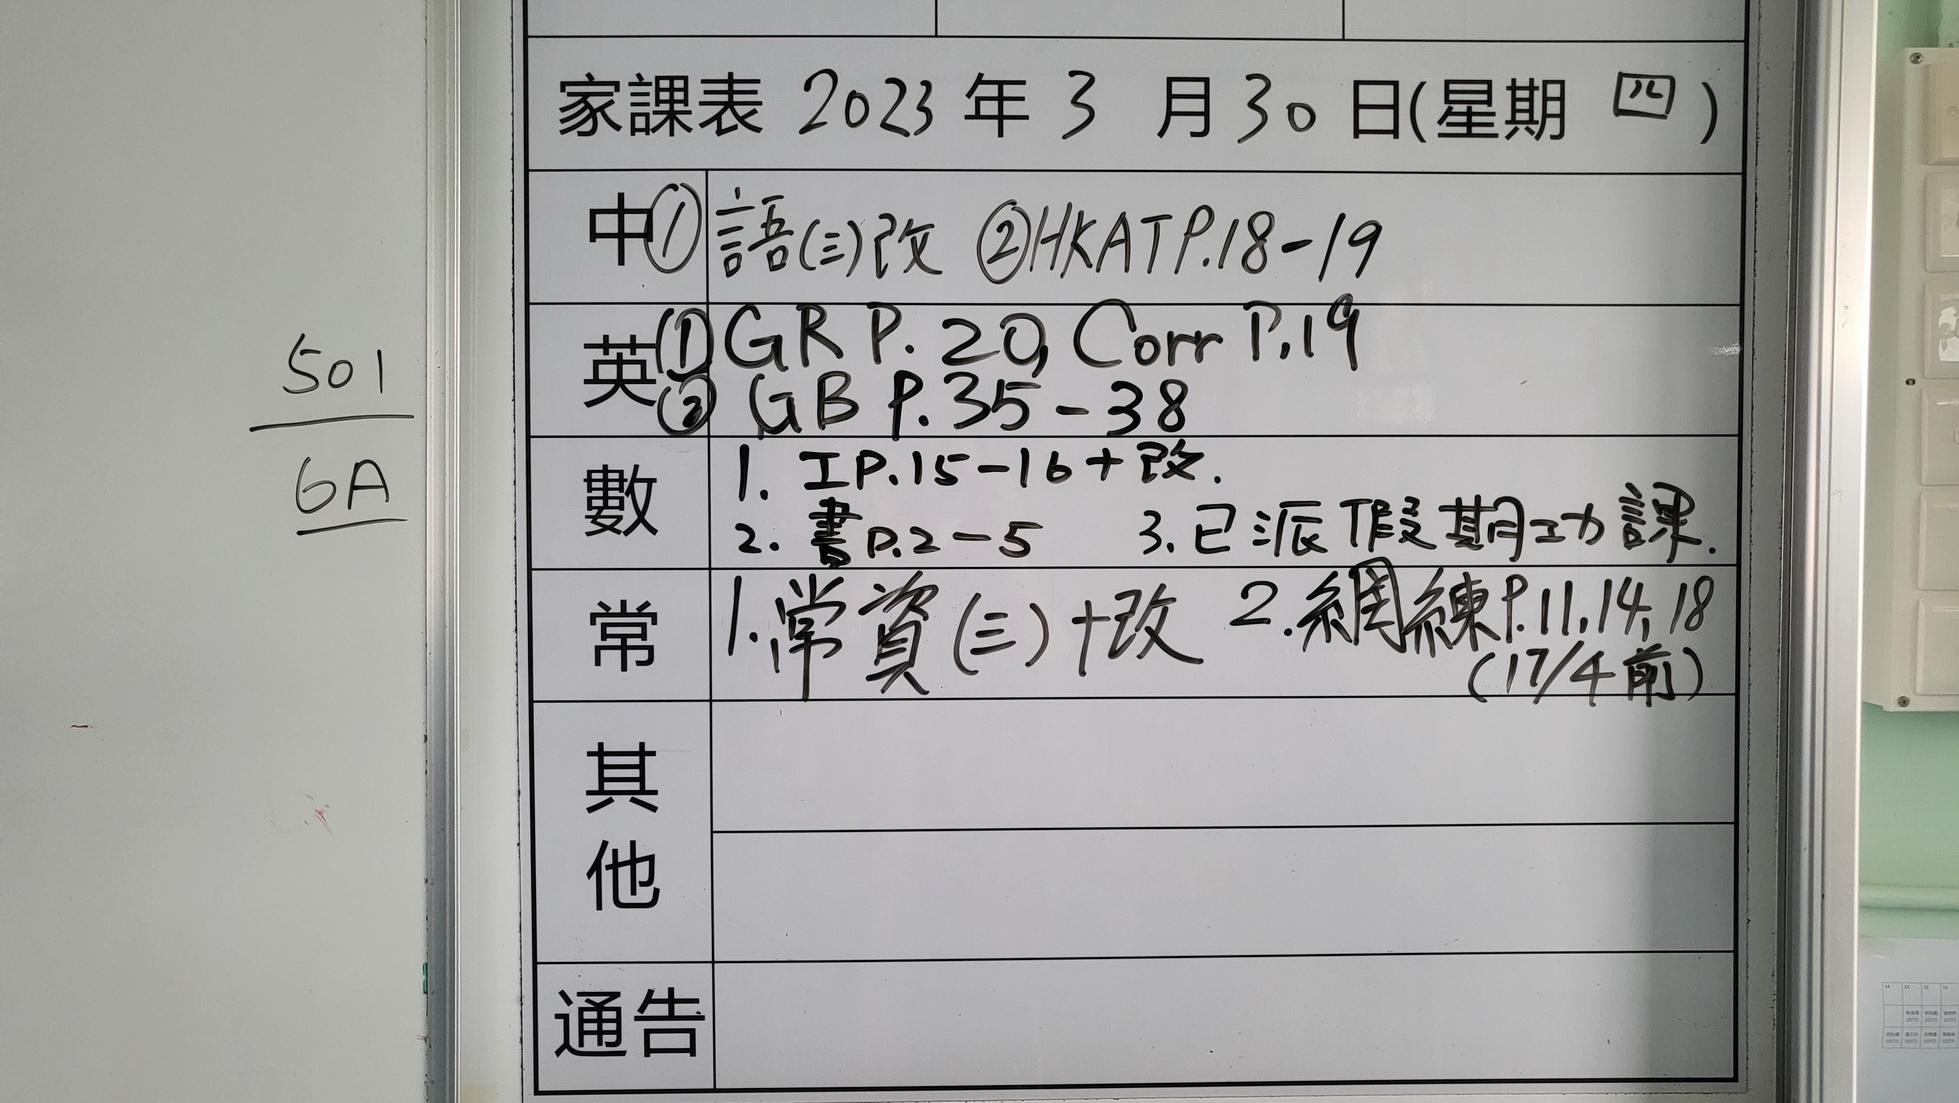 家課表 2023 年 3 月 30 日(星期 四)
中 ① 語(三)改 ② HKAT P.18-19
英 ① GR P. 20, Corr P.19
② GB P. 35-38
數 1. 工P.15-16+改.
2. 書P.2-5 3. 已派假期功課.
常 1. 常資(三)+改 2. 網練P.11,14,18
(17/4前)
其他
通告
501
6A